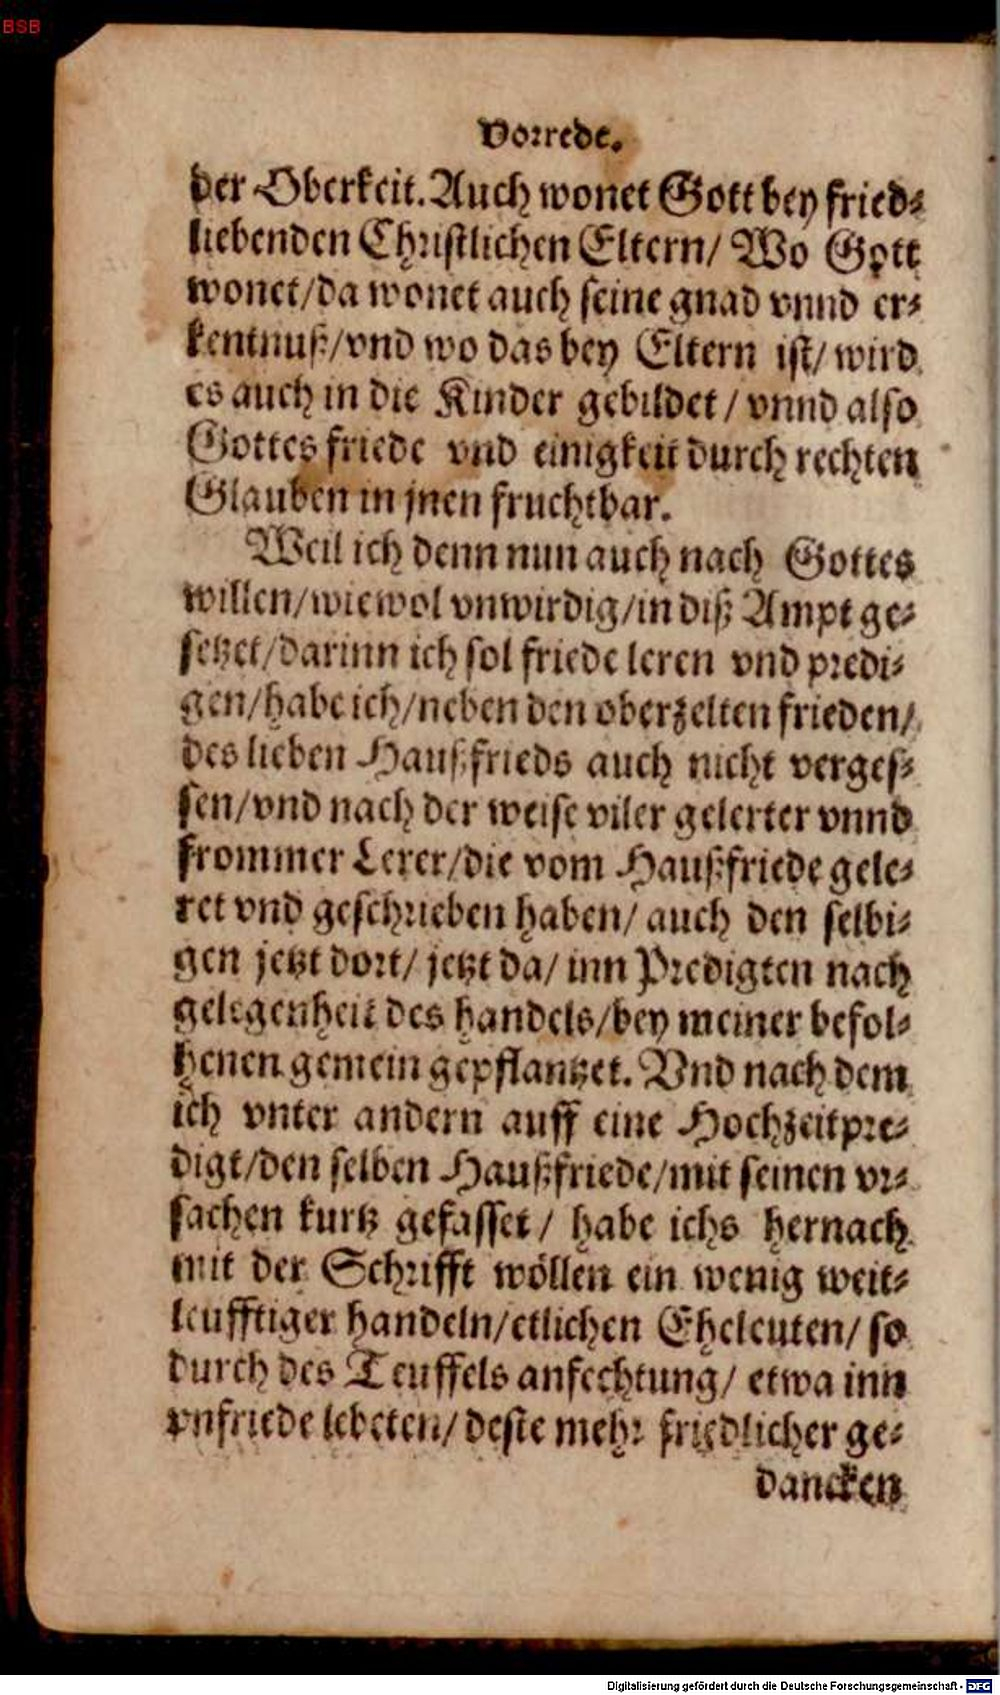 BSB
Vorrede.
der Oberkeit. Auch wonet Gott bey fried⸗
liebenden Christlichen Eltern/ Wo Gott
wonet/da wonet auch seine gnad vnnd er⸗
kentnuß/vnd wo das bey Eltern ist/ wird
es auch in die Kinder gebildet / vnnd also
Gottes friede vnd einigkeit durch rechten
Glauben in jnen fruchtbar.
Weil ich denn nun auch nach Gottes
willen/wiewol vnwirdig/in diß Ampt ge⸗
setzet/darinn ich sol friede leren vnd predi⸗
gen/habe ich/neben den oberzelten frieden/
des lieben Haußfrieds auch nicht verges⸗
sen/vnd nach der weise viler gelerter vnnd
frommer Lerer/die vom Haußfriede gele⸗
ret vnd geschrieben haben/ auch den selbi⸗
gen jetzt dort/ jetzt da/ inn Predigten nach
gelegenheit des handels/bey meiner befol⸗
henen gemein gepflantzet. Vnd nach dem
ich vnter andern auff eine Hochzeitpre⸗
digt/den selben Haußfriede/mit seinen vr⸗
sachen kurtz gefasset / habe ichs hernach
mit der Schrifft wöllen ein wenig weit⸗
leufftiger handeln/etlichen Eheleuten/ so
durch des Teuffels anfechtung/ etwa inn
vnfriede lebeten/ deste mehr friedlicher ge⸗
dancken
Digitalisierung gefördert durch die Deutsche Forschungsgemeinschaft - DFG